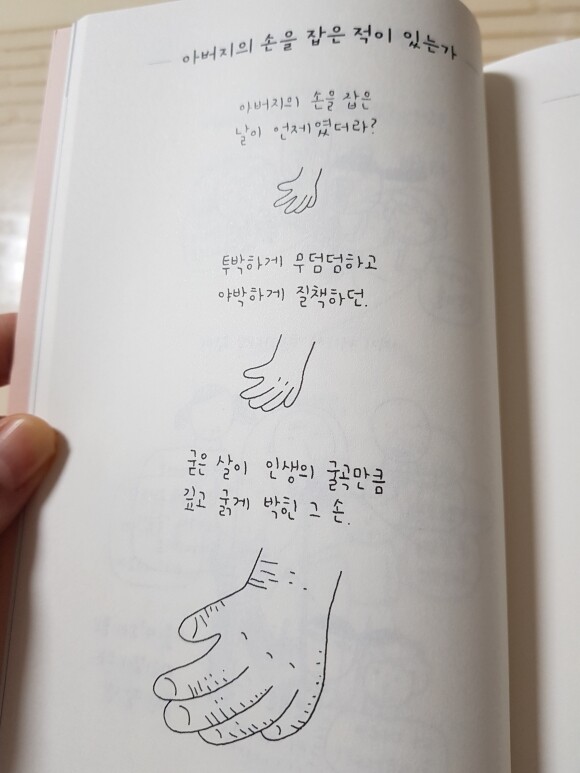 아버지의 손을 잡은 적이 있는가
아버지의 손을 잡은
날이 언제였더라?
투박하게 무덤덤하고
야박하게 질책하던.
굳은 살이 인생의 굴곡만큼
깊고 굵게 박힌 그 손.